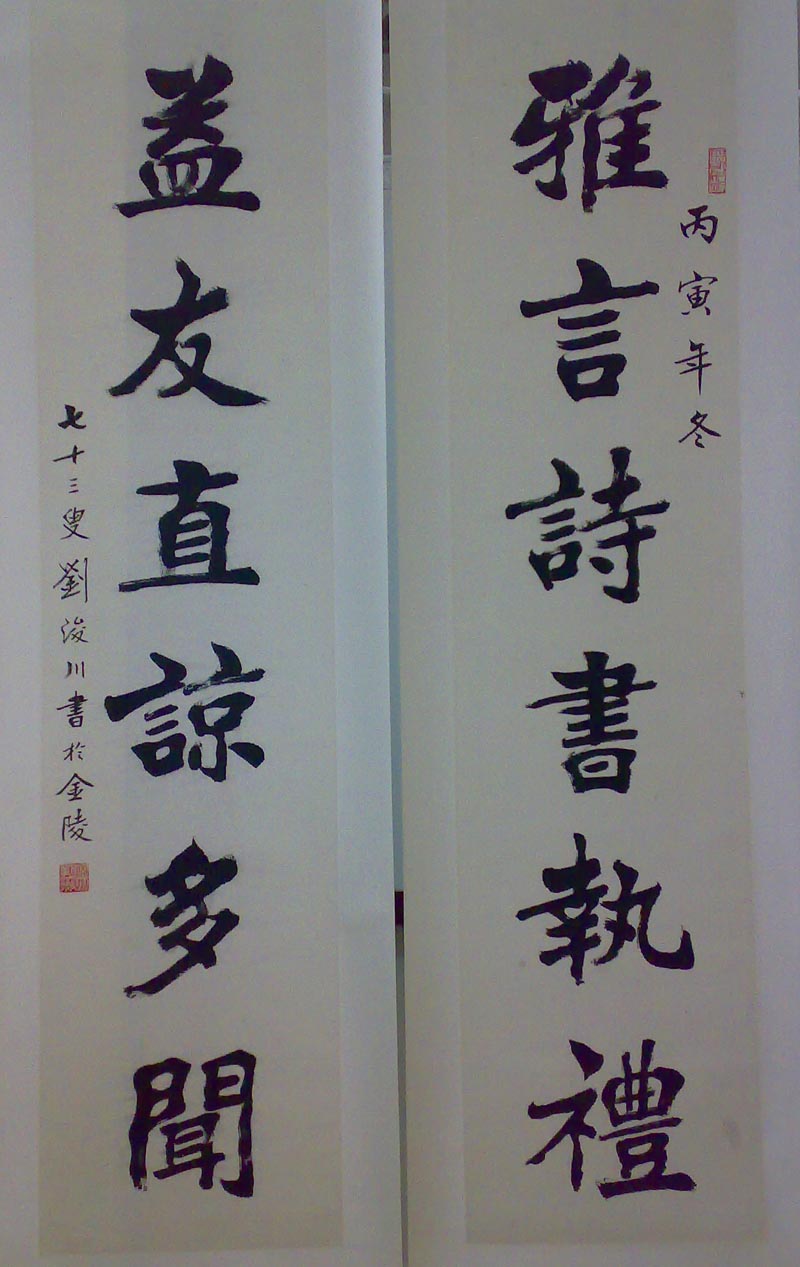 丙寅年冬
雅言詩書執禮
益友直諒多聞
七十三叟劉浚川書於金陵